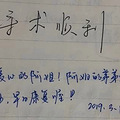 手术顺利
心的阿姐！阿姐的弟弟
早日康复喔！
2019.5.